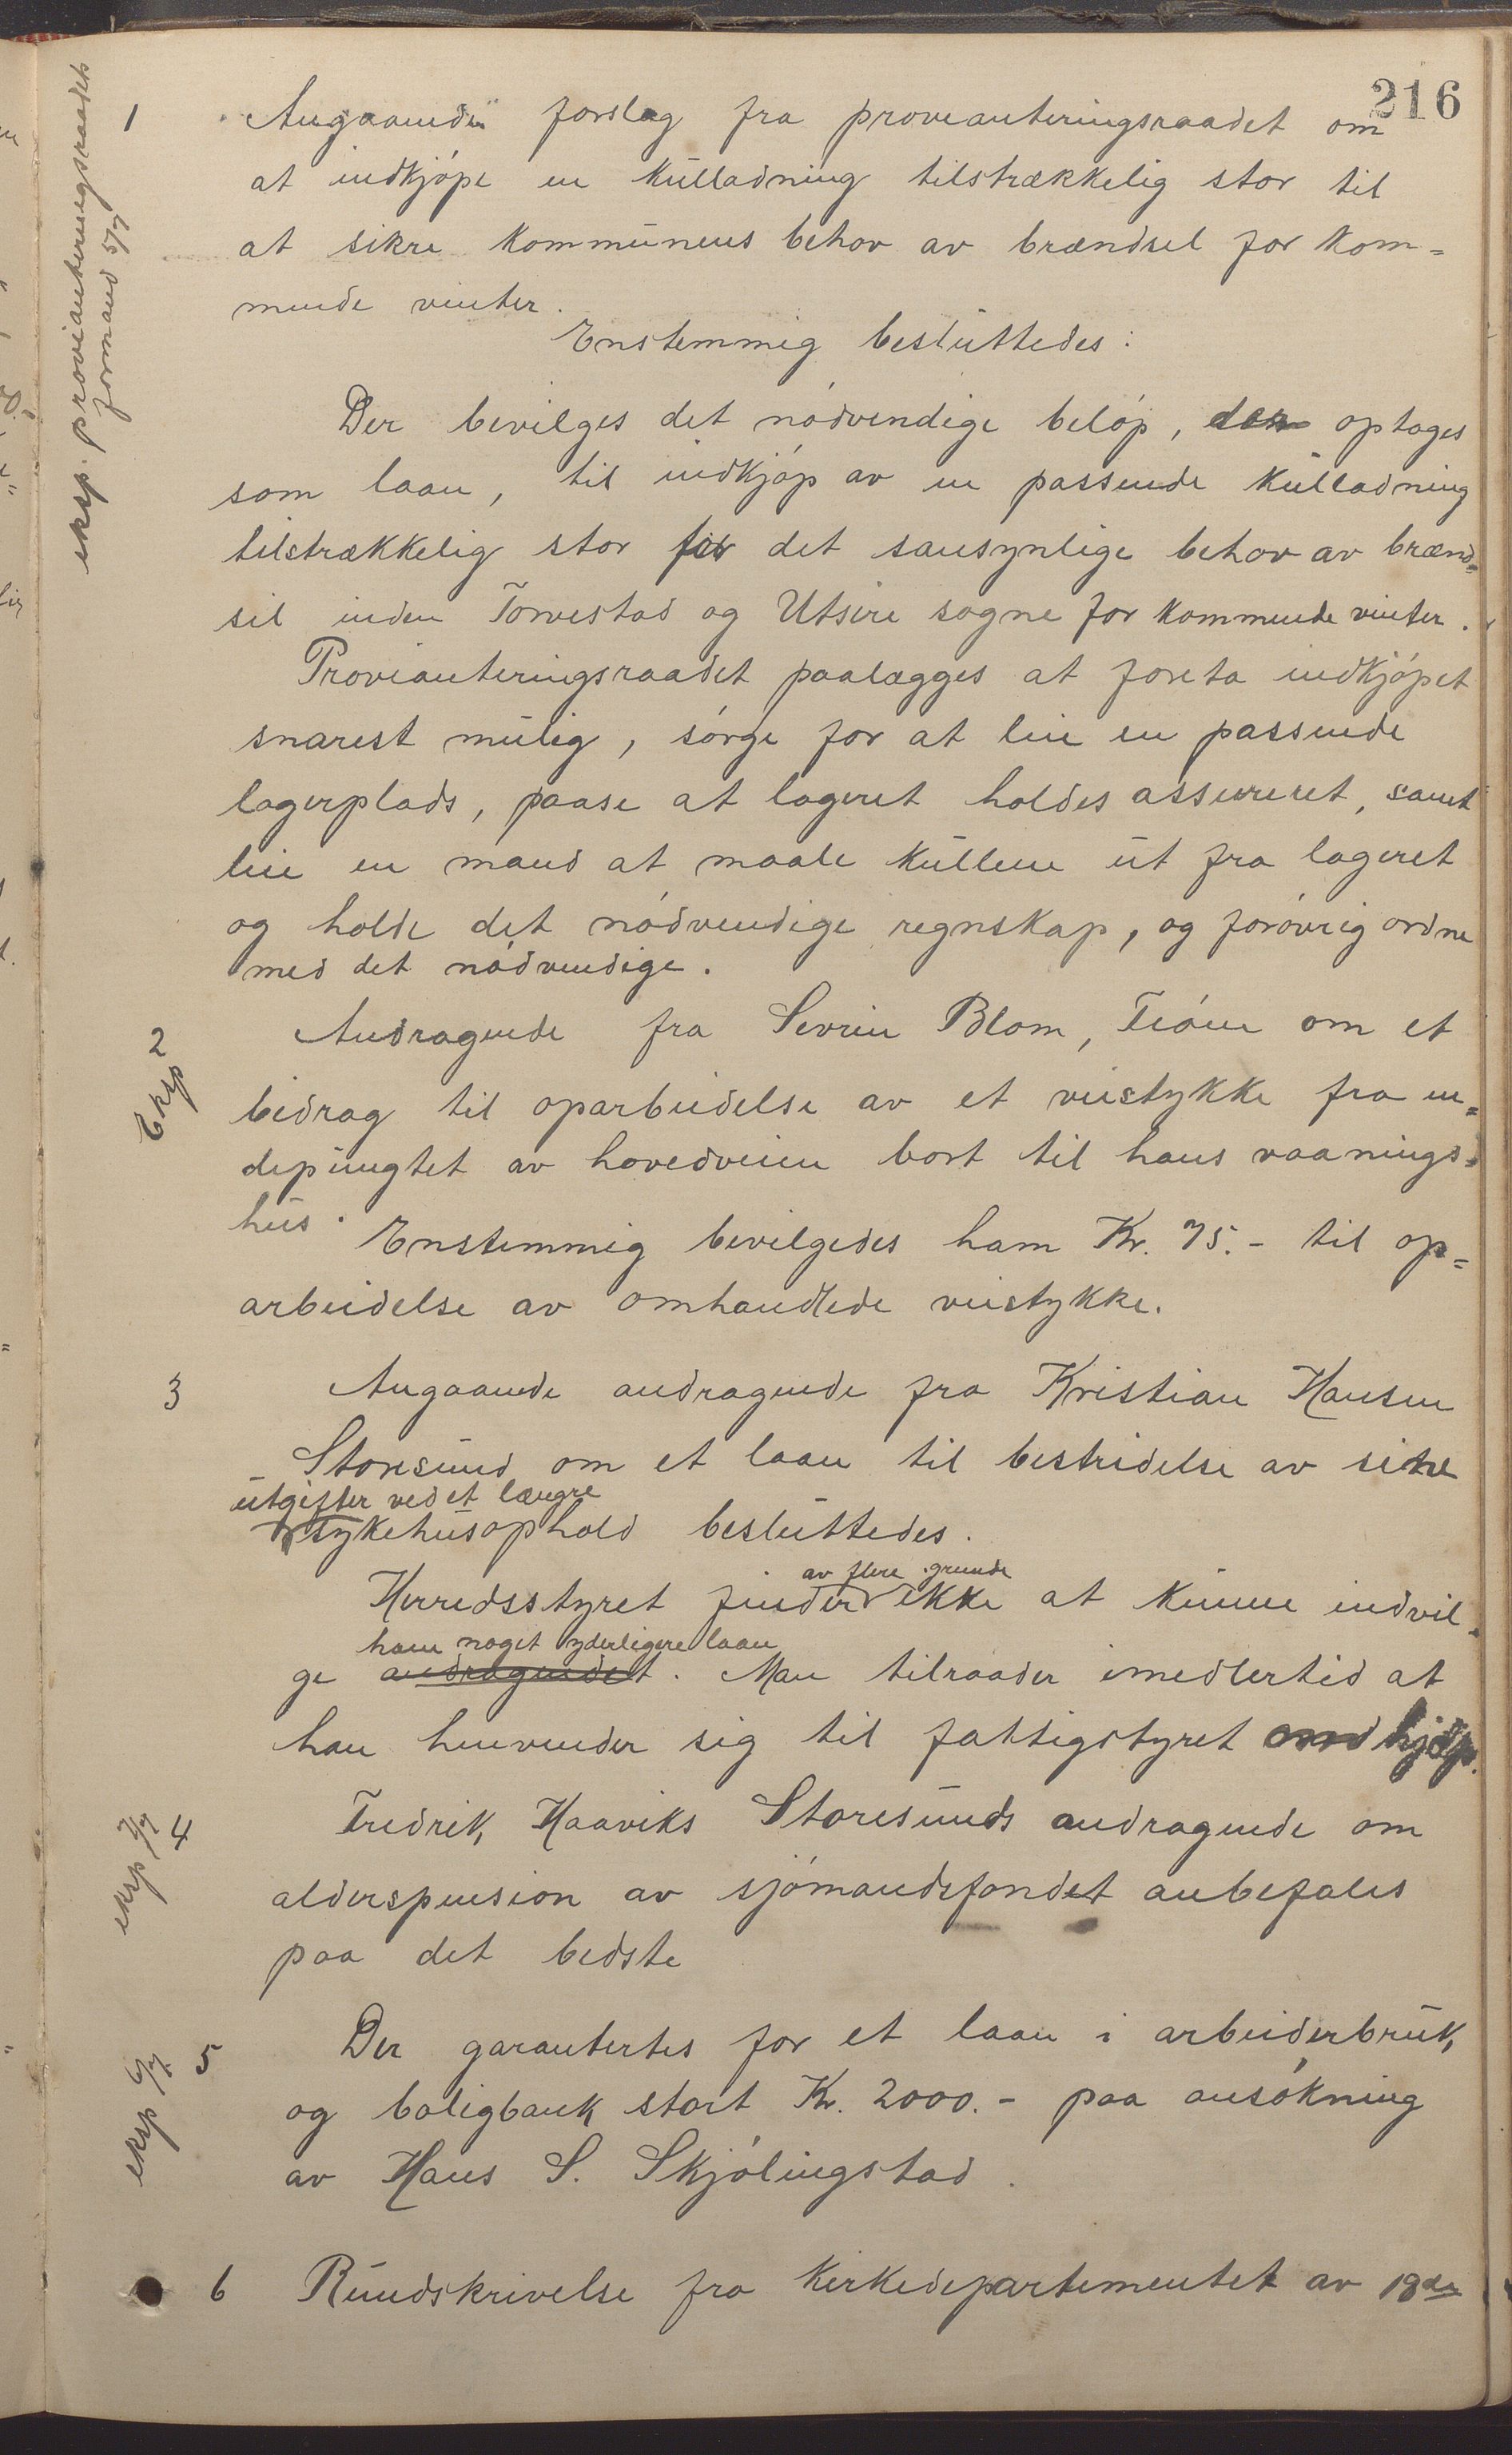 216
eksp. provianteringsraadets
formand 5/7
1 Angaaende forslag fra provianteringsraadet om
at indkjøpe en kulladning tilstrækkelig stor til
at sikre kommunens behov av brændsel for kom=
mende vinter.
Enstemmig besluttedes:
Der bevilges det nødvendige beløp, der optages
som laan, til indkjøp av en passende kulladning
tilstrækkelig stor for det sansynlige behov av brænd=
sel inden Torvestad og Utsire sogne for kommende vinter.
Provianteringsraadet paalægges at foreta indkjøpet
snarest mulig, sørge for at leie en passende
lagerplads, paase at lageret holdes assureret, samt
leie en mand at maale kullene ut fra lageret
og holde det nødvendige regnskap, og forøvrig ordne
med det nødvendige.
2 Andragende fra Sevrin Blom, Feøen om et
Eksp
bidrag til oparbeidelse av et veistykke fra en=
depungtet av hovedveien bort til hans vaanings=
hus.
Enstemmig bevilgedes ham Kr. 75.- til op=
arbeidelse av omhandlede veistykke.
3 Angaaende andragende fra Kristian Hansen
Storesund om et laan til bestridelse av sine
utgifter ved et længre
sykehusophold besluttedes.
av flere grunde
Herredsstyret finder ikke at kunne indvil=
ham noget yderligere laan
ge andragendet. Man tilraader imedlertid at
han henvender sig til fattigstyret om hjælp.
eksp 7/7
4 Fredrik Haaviks Storesunds andragende om
alderspension av sjømandsfondet anbefales
paa det bedste
eksp 6/7
5 Der garantertes for et laan i arbeiderbruk
og boligbank stort Kr. 2000.- paa ansøkning
av Hans S. Skjølingstad.
6 Rundskrivelse fra Kirkedepartementet av 18de